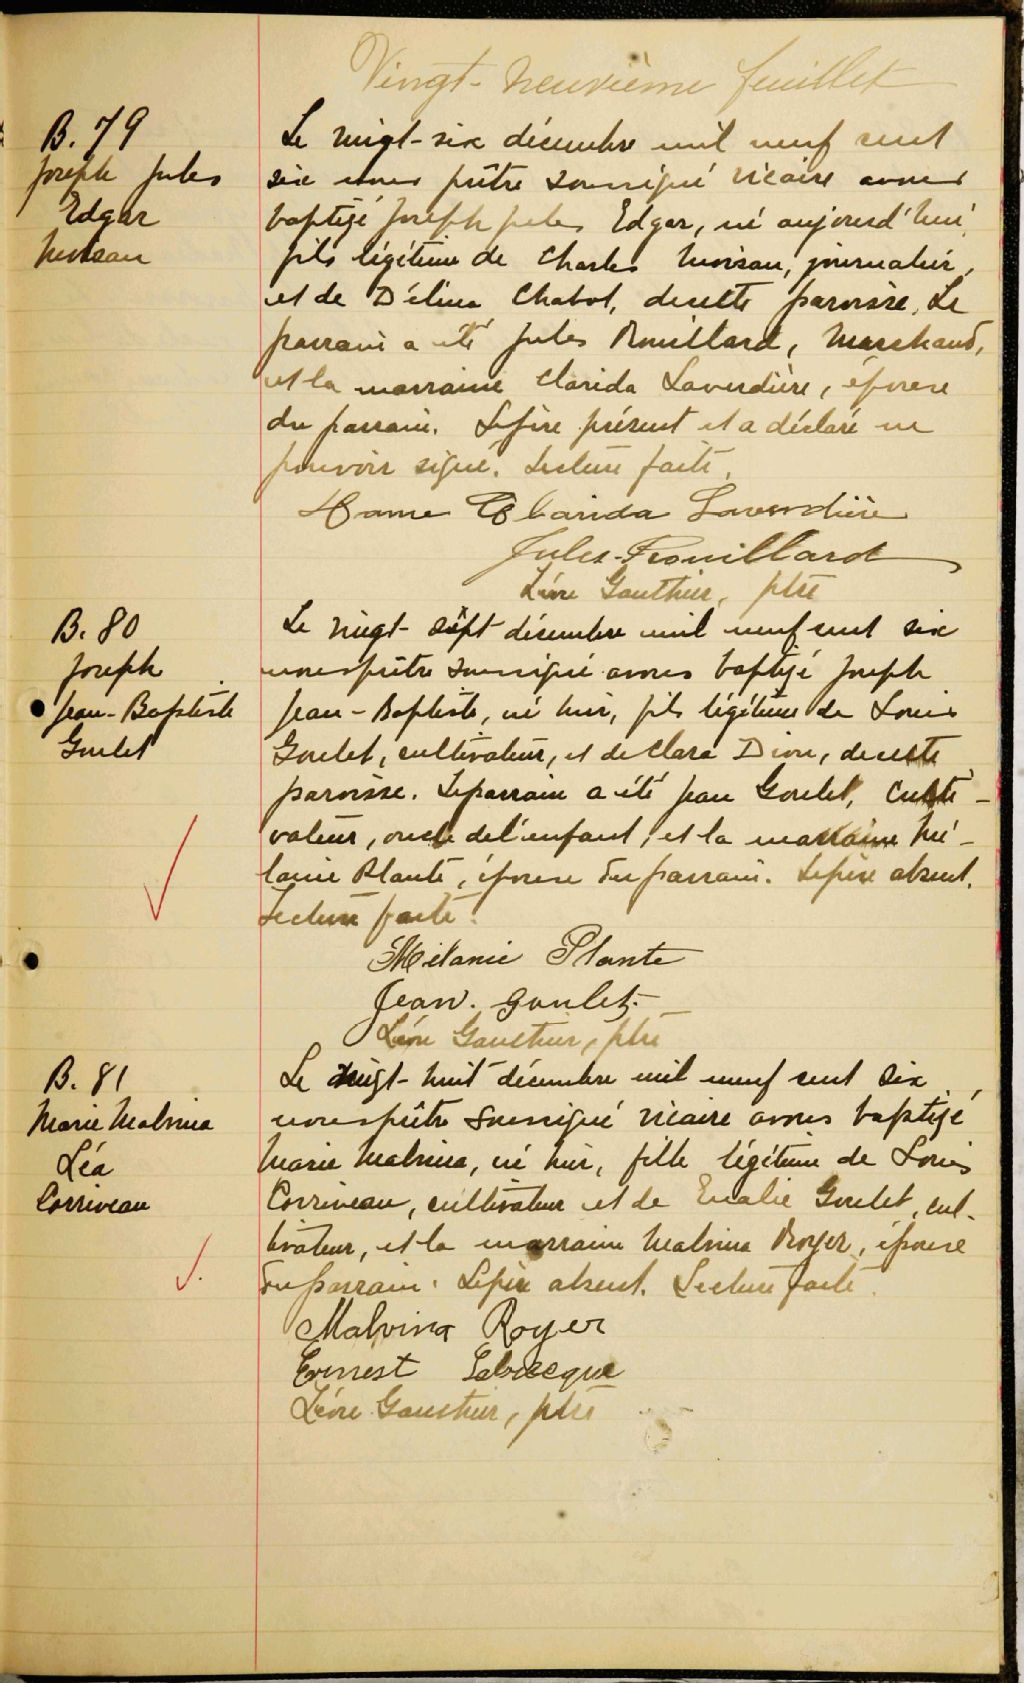 Vingt-neuvième feuillet
B. 79
Joseph Jules
Edgar
Moisan
Le vingt-six décembre mil neuf cent
six nous prêtre soussigné vicaire avons
baptisé Joseph Jules Edgar, né aujourd'hui,
fils légitime de Charles Moisan, journalier,
et de Délina Chabot, de cette paroisse. Le
parrain a été Jules Rouillard, marchand,
et la marraine Clarida Laverdière, épouse
du parrain. Le père présent et a déclaré ne
pouvoir signé. Lecture faite.
Dame Clarida Laverdière
Jules Rouillard
Léon Gauthier, ptre
B. 80
Joseph
Jean-Baptiste
Goulet
Le vingt-sept décembre mil neuf cent six
nous prêtre soussigné avons baptisé Joseph
Jean-Baptiste, né hier, fils légitime de Louis
Goulet, cultivateur, et de Clara Dion, de cette
paroisse. Le parrain a été Jean Goulet, culti-
vateur, oncle de l'enfant, et la marraine Mé-
lanie Plante, épouse du parrain. Le père absent.
Lecture faite.
Mélanie Plante
Jean. Goulet.
Léon Gauthier, ptre
B. 81
Marie Malvina
Léa
Corriveau
Le vingt-huit décembre mil neuf cent six
nous prêtre soussigné vicaire avons baptisé
Marie Malvina, né hier, fille légitime de Louis
Corriveau, cultivateur et de Eualie Goulet, cul-
tivateur, et la marraine Malvina Royer, épouse
du parrain. Le père absent. Lecture faite.
Malvina Royer
Ernest Labrecque
Léon Gauthier, ptre